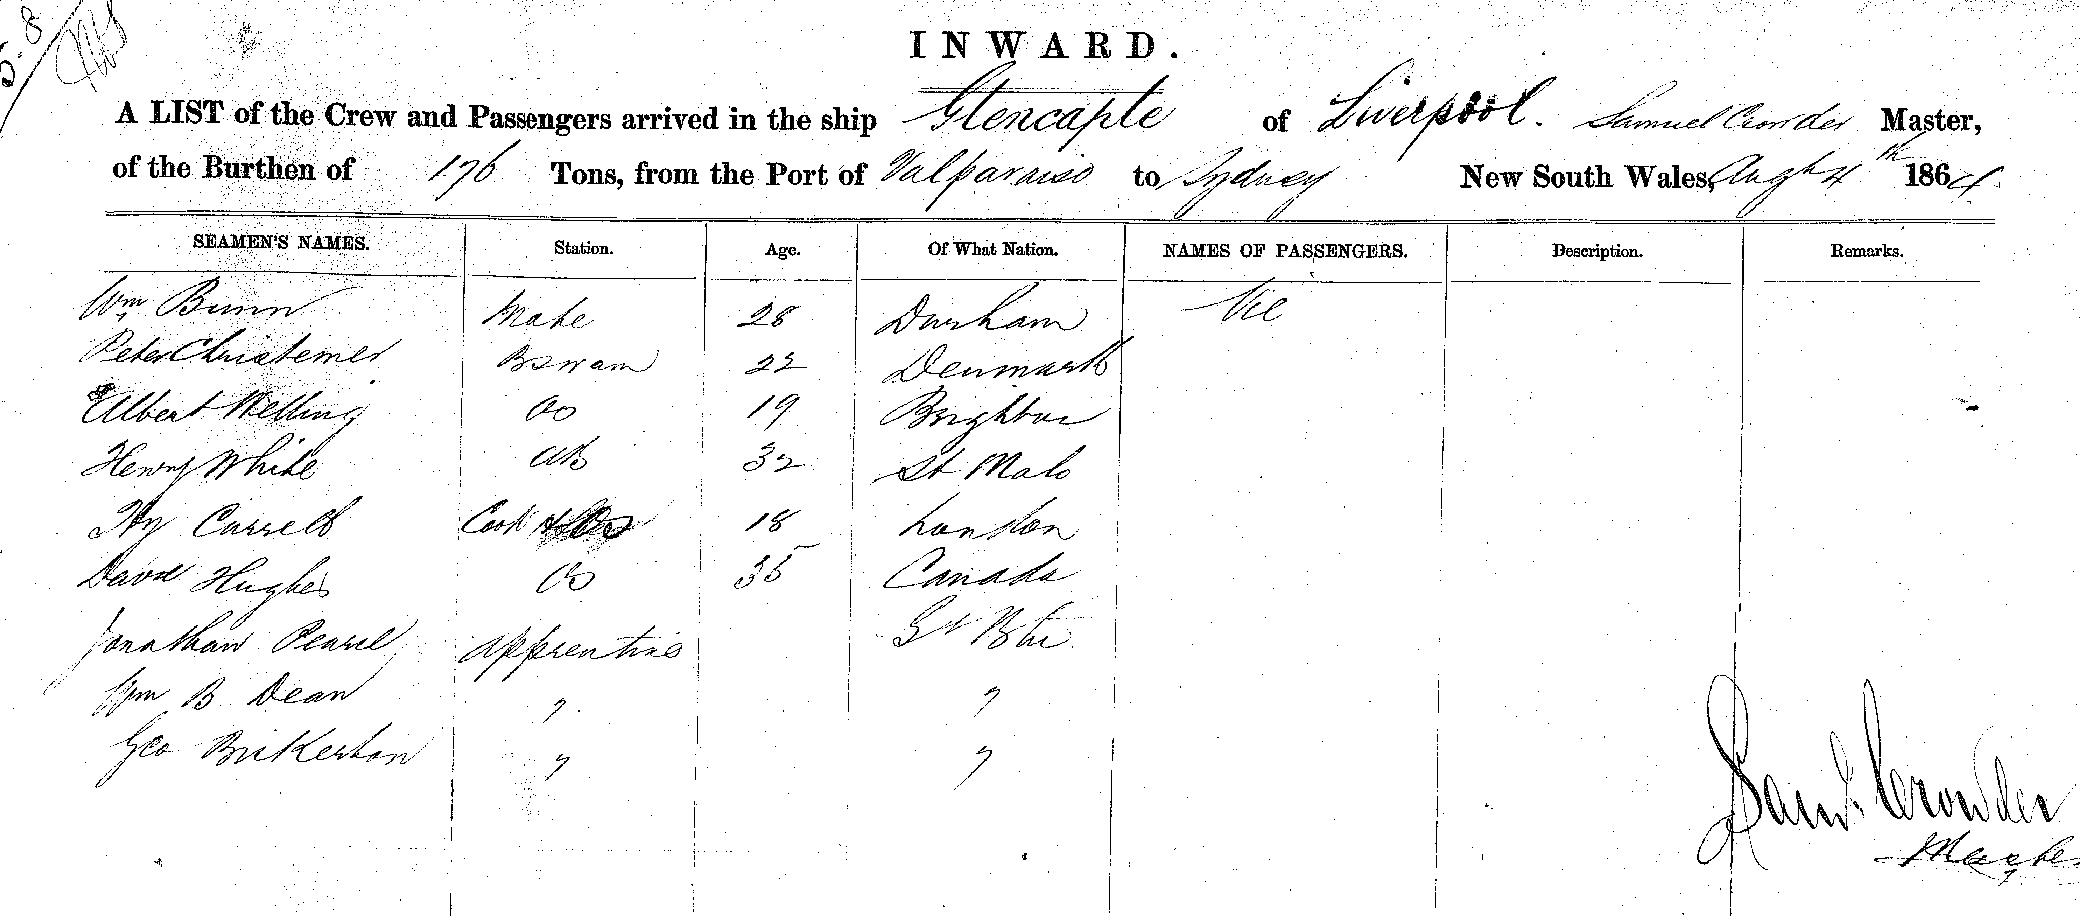 5.8
INWARD.
A LIST of the Crew and Passengers arrived in the ship Glencaple of Liverpool. Samuel Crowder Master,
of the Burthen of 176 Tons, from the Port of Valparaiso to Sydney New South Wales, Augt 4th 1864.
SEAMEN'S NAMES. Station. Age. Of What Nation. NAMES OF PASSENGERS. Description. Remarks.
Wm Bunn Mate 28 Durham Nil
Peter Christemer Bswam 22 Denmark
Albert Welling OS 19 Brighton
Henry White AB 32 St Malo
Hy Carrell Cook 18 London
David Hughes OS 35 Canada
Jonathan Pearce Apprentice Gt Btn
Wm B Dean " "
Geo Bickerton " "
Saml Crowder
Master